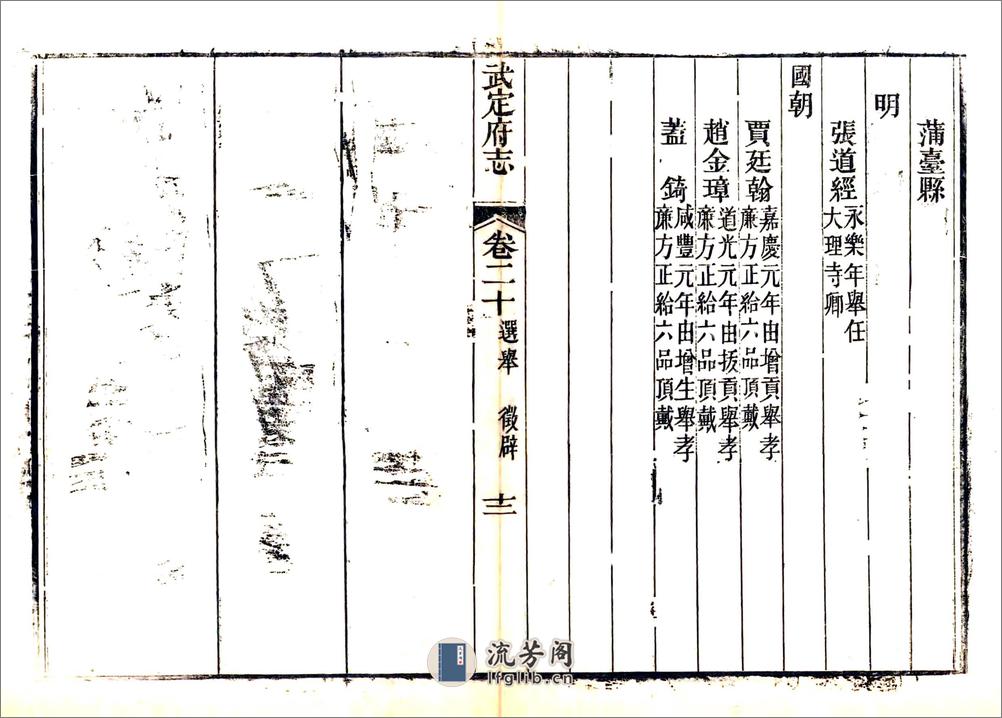 蒲臺縣
明
張道經永樂年舉任
大理寺卿
國朝
賈廷翰嘉慶元年由增貢舉孝
廉方正給六品頂戴
趙金璋道光元年由拔貢舉孝
廉方正給六品頂戴
蓋錡咸豐元年由增生舉孝
廉方正給六品頂戴
武定府志 卷二十 選舉 徵辟 十二
流芳阁
lfglib.cn